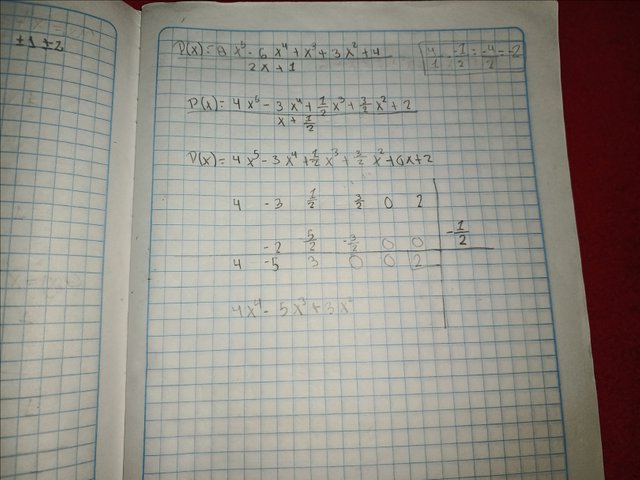 ±1 ±2
P(x) = 8x⁵ - 6x⁴ + x³ + 3x² + 4
2x + 1
4/1 · -1/2 = -4/2 = -2
P(x) = 4x⁵ - 3x⁴ + 1/2 x³ + 3/2 x² + 2
x + 1/2
P(x) = 4x⁵ - 3x⁴ + 1/2 x³ + 3/2 x² + 0x + 2
4 -3 1/2 3/2 0 2
-2 5/2 -3/2 0 0 -1/2
4 -5 3 0 0 2
4x⁴ - 5x³ + 3x²